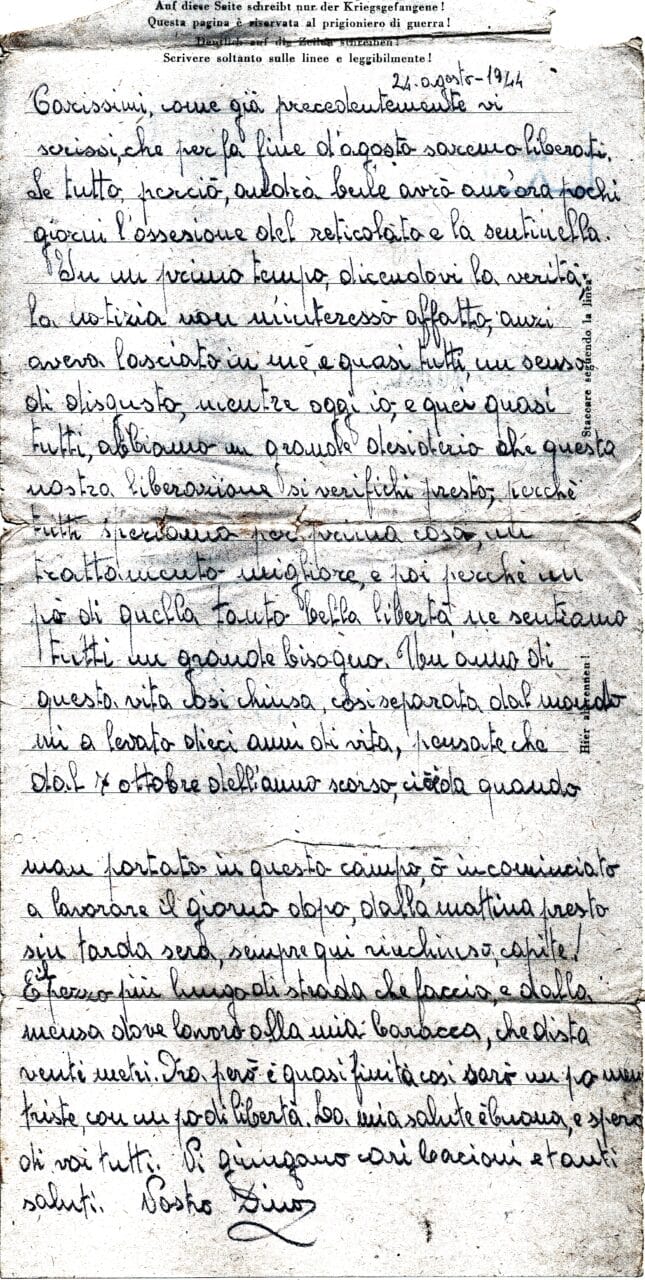 Auf diese Seite schreibt nur der Kriegsgefangene!
Questa pagina è riservata al prigioniero di guerra!
Deutlich auf die Zeilen schreiben!
Scrivere soltanto sulle linee e leggibilmente!
24-agosto-1944
Carissimi, come già precedentemente vi
scrissi, che per fa fine d'agosto saremo liberati.
Se tutto, perciò, andrà bene avrò anc'ora pochi
giorni l'ossesione del reticolato e la sentinella.
In un primo tempo, dicendovi la verità,
la notizia non m'interessò affatto, anzi
aveva lasciato in mè, e quasi tutti, un senso
di disgusto, mentre oggi io, e quei quasi
tutti, abbiamo un grande desiderio che questa
nostra liberazione si verifichi presto, perchè
tutti speriamo per prima cosa, un
trattamento migliore, e poi perchè un
pò di quella tanto bella libertà ne sentiamo
tutti un grande bisogno. Un'anno di
questa vita cosi chiusa, cosi separata dal mondo
mi a levato dieci anni di vita, pensate che
dal 7 ottobre dell'anno scorso, cioè da quando
man portato in questo campo, ò incominciato
a lavorare il giorno dopo, dalla mattina presto
sin tarda sera, sempre qui rinchiuso, capite!
E il pezzo più lungo di strada che faccio, e dalla
mensa dove lavoro alla mia baracca, che dista
venti metri. Ora però è quasi finita cosi sarò un po men
triste, con un po di libertà. La mia salute è buona, e spero
di voi tutti. Vi giungano cari bacioni e tanti
saluti. Vostro Dino
Staccare seguendo la linea!
Hier abtrennen!